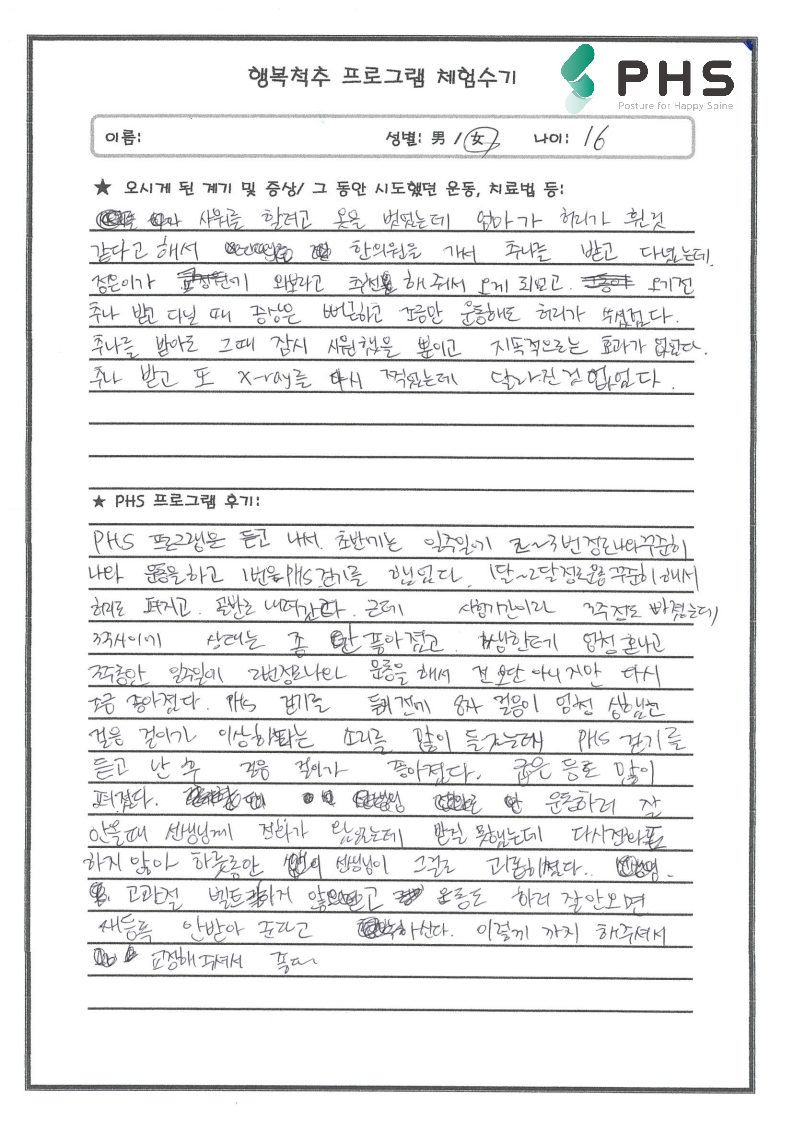 행복척추 프로그램 체험수기
PHS
Posture for Happy Spine
이름:
성별: 男 / 女
나이: 16
★ 오시게 된 계기 및 증상/ 그 동안 시도했던 운동, 치료법 등:
샤워를 할려고 옷을 벗었는데 엄마가 허리가 휜것
같다고 해서 한의원을 가서 추나를 받고 다녔는데.
정은이가 와보라고 추천을 해줘서 오게 되었고. 오기전
추나 받고 다닐 때 증상은 뻐근하고 조금만 운동해도 허리가 쑤셨었다.
추나를 받아도 그때 잠시 시원했을 뿐이고 지속적으로는 효과가 없었다.
추나 받고 또 X-ray를 다시 찍었는데 달라진건 없었다.
★ PHS 프로그램 후기:
PHS 프로그램을 듣고 나서. 초반기는 일주일에 2~3번정도나와꾸준히
나와 운동을하고 1번은PHS걷기를 했었다. 1달~2달정도운동꾸준히해서
허리도 펴지고. 골반도 내려갔다. 근데 시험기간이라 3주정도 빠졌는데
3주사이에 상태는 좀 안 좋아졌고. 쌤한테 엄청 혼나고
3주동안 일주일에 2번정도나와 운동을 해서 전 보단 아니지만 다시
조금 좋아졌다. PHS 걷기를 듣기전에 8자 걸음이 엄청 심했는
걸음 걸이가 이상하다는 소리를 많이 들었는데 PHS 걷기를
듣고 난 후 걸음 걸이가 좋아졌다. 굽은 등도 많이
펴졌다. 운동하러 잘
안올때 선생님께 전화가 왔었는데 받질 못했는데 다시전화도
하지 않아 하룻동안 선생님이 그걸로 괴롭히셨다..
고관절 벨트 하지 않 고 운동도 하러 잘안오면
새등록 안받아 준다고 하신다. 이렇게 까지 해주셔서
교정해주셔서 좋다